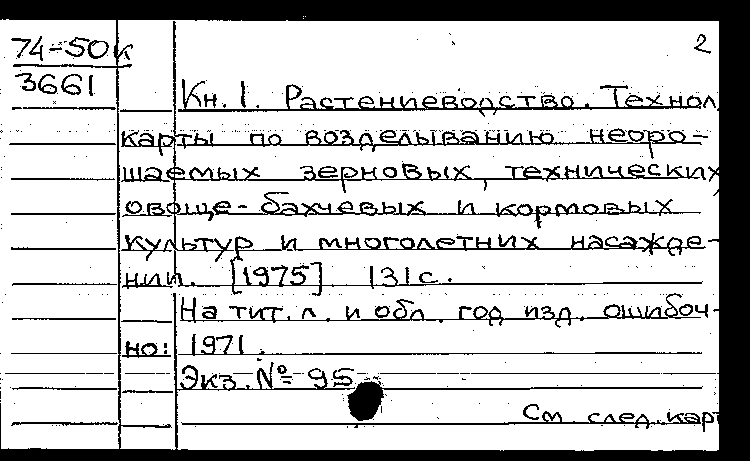 74-50к
2
3661
Кн. 1. Растениеводство. Технол.
карты по возделыванию неоро-
шаемых зерновых, технических
овоще-бахчевых и кормовых
культур и многолетних насажде-
нии. [1975] 131с.
На тит. л. и обл. год изд. ошибоч-
но: 1971.
Экз. № 95
См след. карт